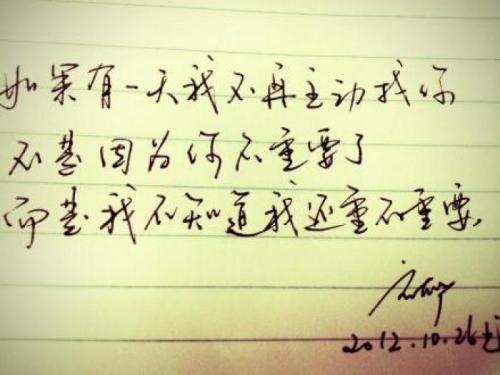 如果有一天我不再主动找你
不是因为你不重要了
而是我不知道我还重不重要.
2012.10.26